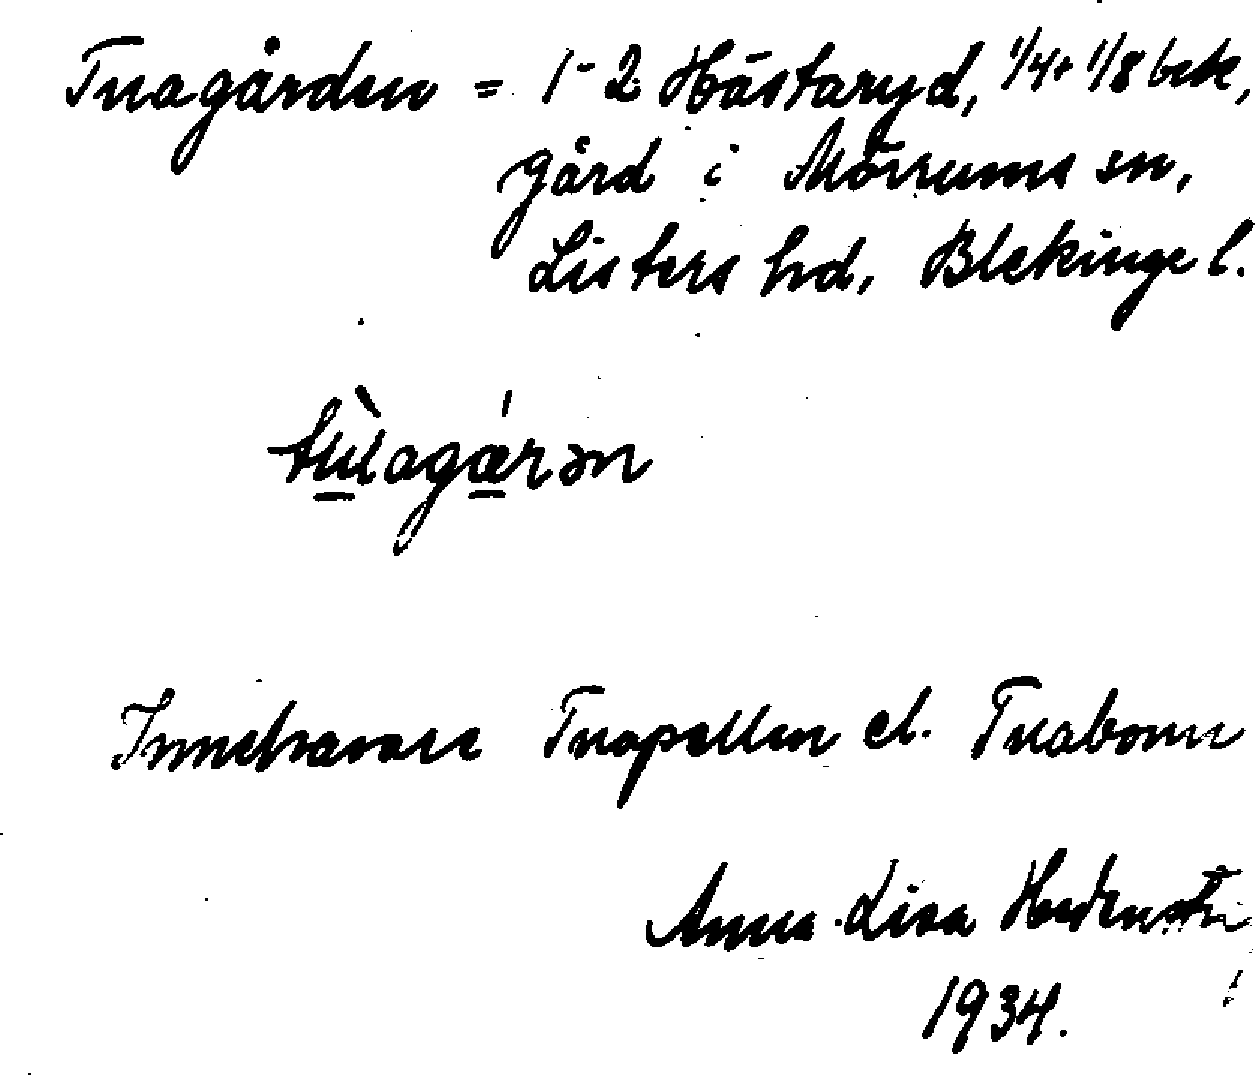 Tuagården = 1-2 Hästaryd, 1/4 + 1/8 bek,
gård i Mörrums sn,
Listers hd, Blekinge l.
Innehavare Tuapellen el. Tuabonn
Anna-Lisa
1934.